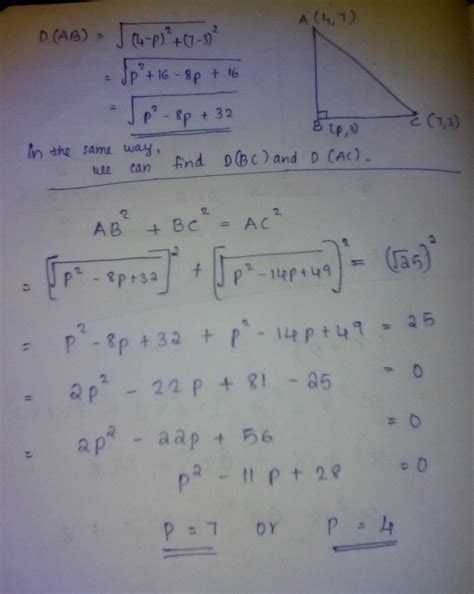 D(AB) = √(4-p)² + (7-3)²
= √p² + 16 - 8p + 16
= √p² - 8p + 32
A (4,7)
B (p,3)
C (7,3)
In the same way,
we can find D(BC) and D(AC).
AB² + BC² = AC²
= [√p² - 8p + 32]² + (√p² - 14p + 49)² = (√25)²
= p² - 8p + 32 + p² - 14p + 49 = 25
= 2p² - 22p + 81 - 25 = 0
= 2p² - 22p + 56 = 0
p² - 11p + 28 = 0
P = 7 or P = 4